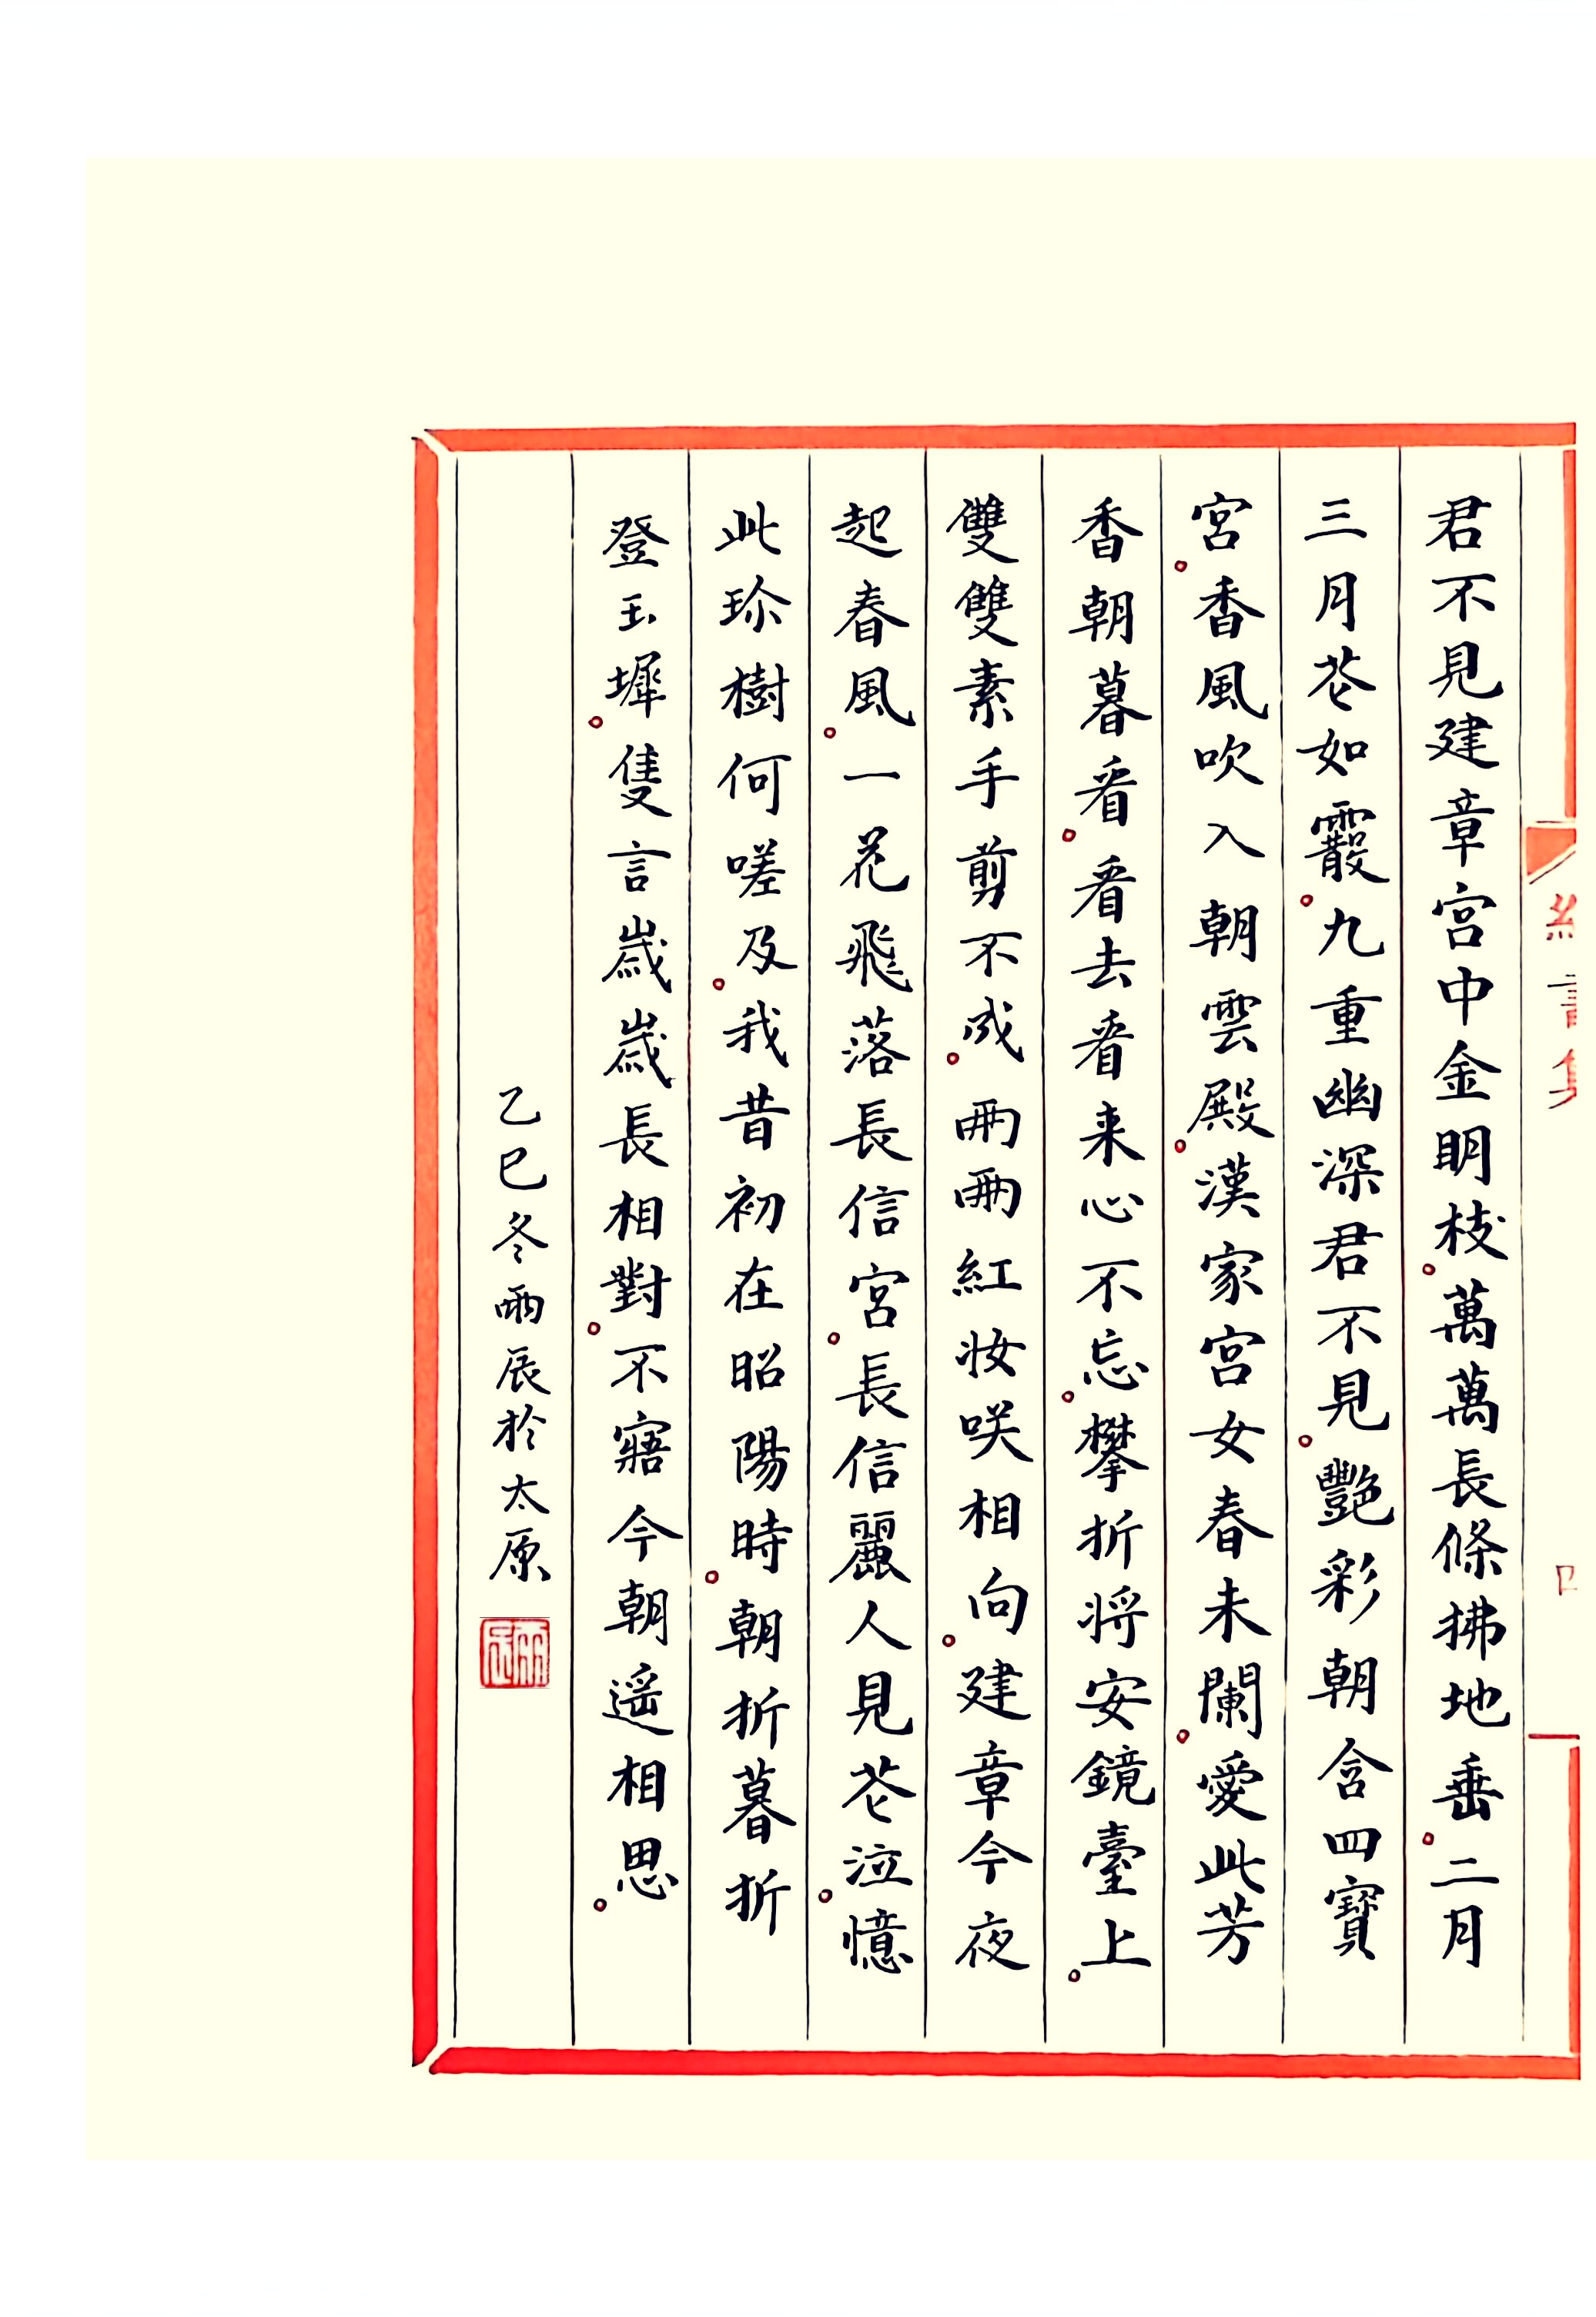 君不見建章宮中金明枝萬萬長條拂地垂二月
三月苍如霰九重幽深君不見艷彩朝含四寶
宮香風吹入朝雲殿漢家宮女春未闌愛此芳
香朝暮看看去看来心不忘攀折将安鏡臺上
雙雙素手剪不成兩兩紅妝咲相向建章今夜
起春風一花飛落長信宮長信麗人見苍泣憶
此珍樹何嗟及我昔初在昭陽時朝折暮折
登玉墀隻言歲歲長相對不寤今朝遥相思
乙巳冬雨辰於太原